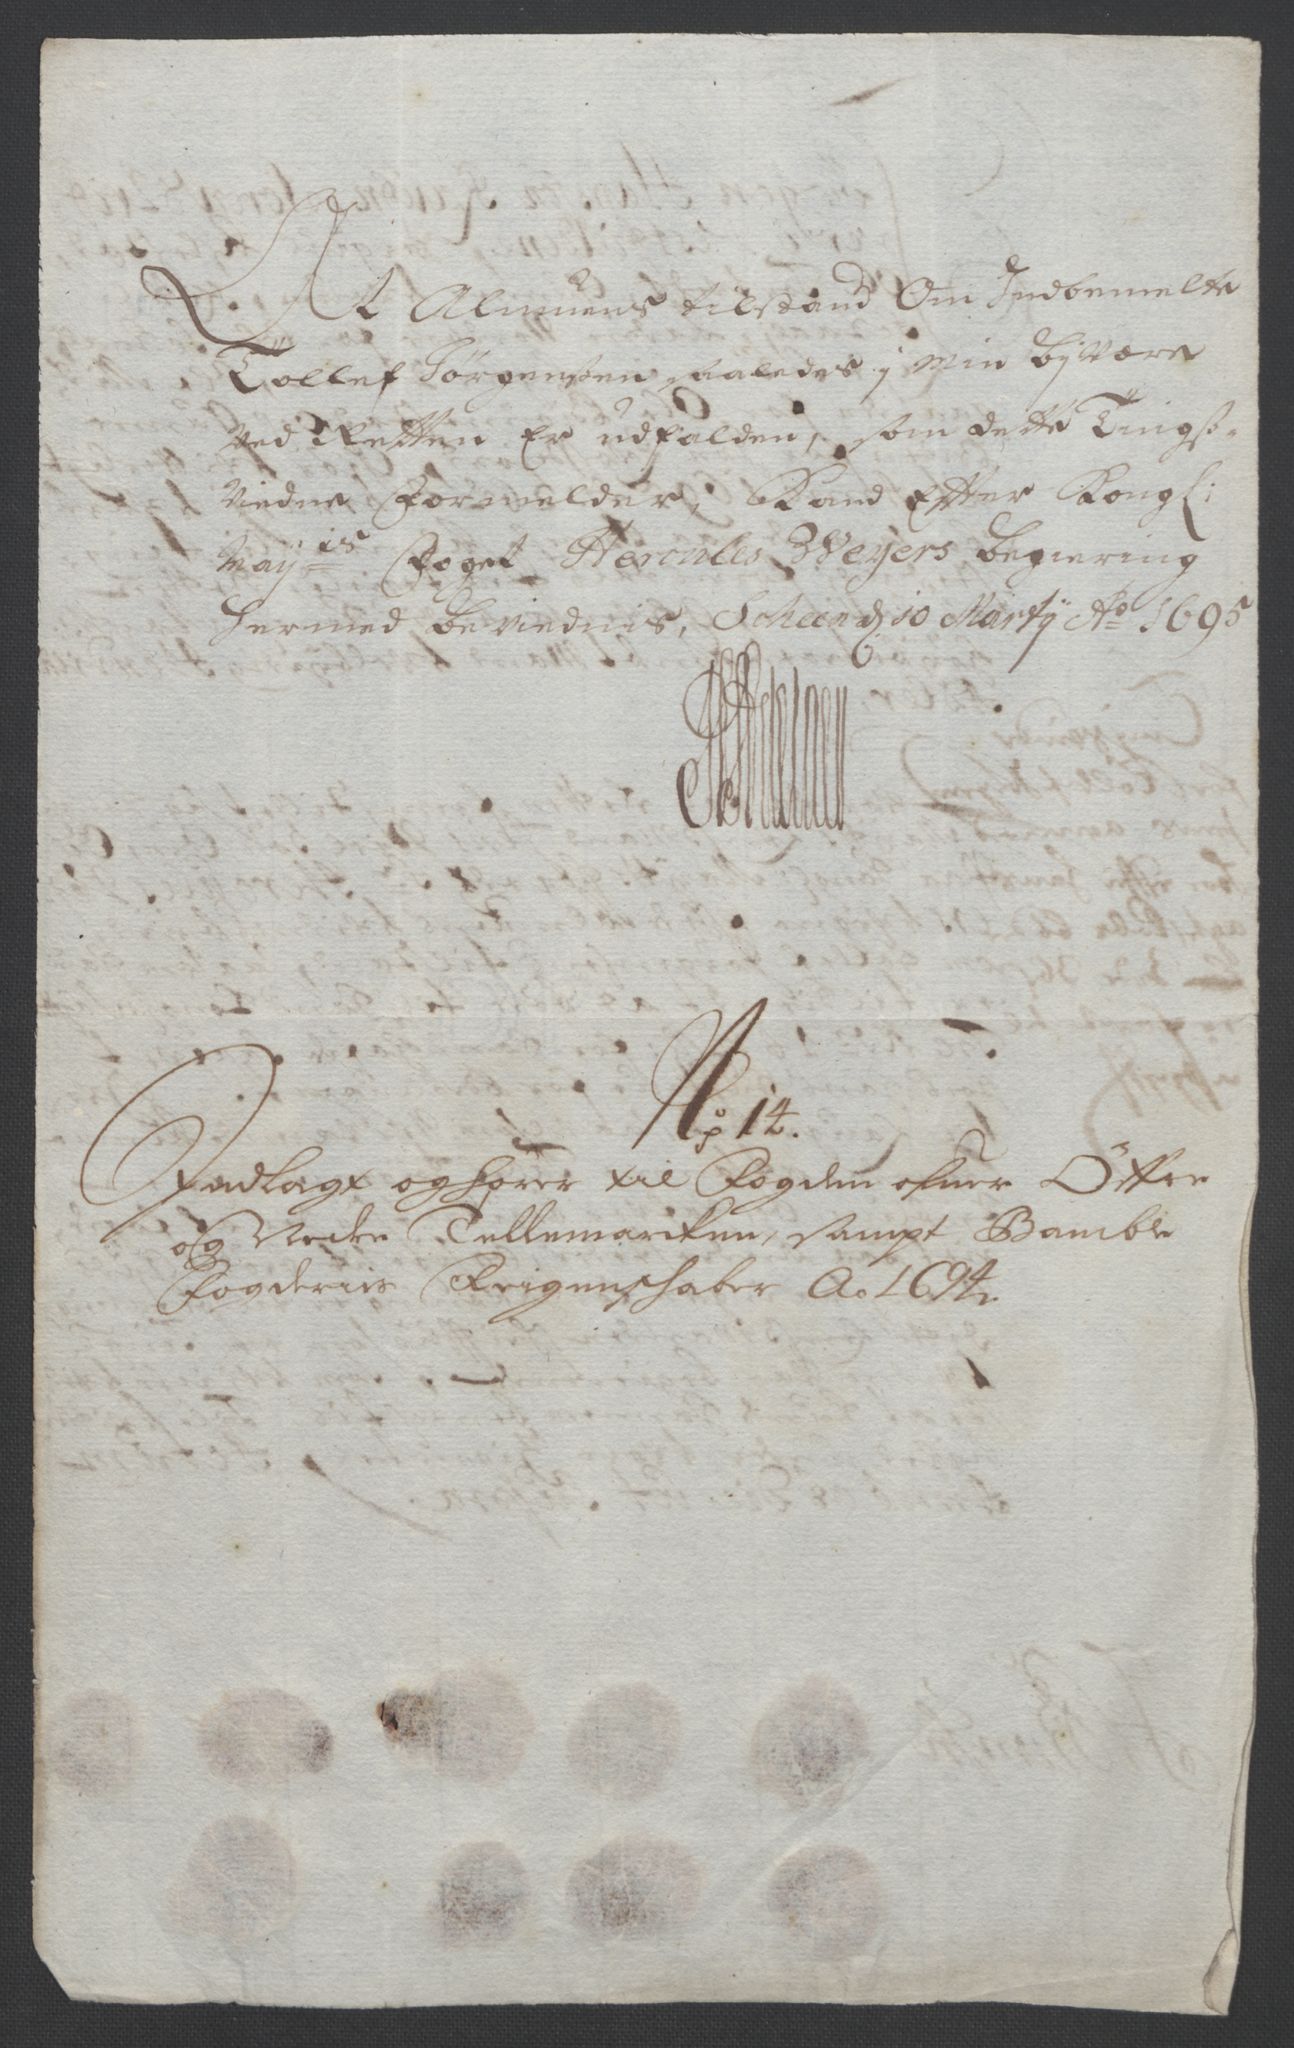 At Almuens tilstand Om Indbemelte
Tollef Jörgensßen saaledes j min bijvære
ved Retten Er udfalden, som dette Tingß-
vidne Formelder, Kand Efter Kongl:
Mayts Foget Hercules Weyers begiering
hermed bevidnis, Scheen d 10 Martij Ao 1695
No 14.
Indlagt og hører til Fogden ofuer Öffre
og Nedre Tellemarcken, sampt Bamble
Fogderies Reigenschaber Ao 1694.